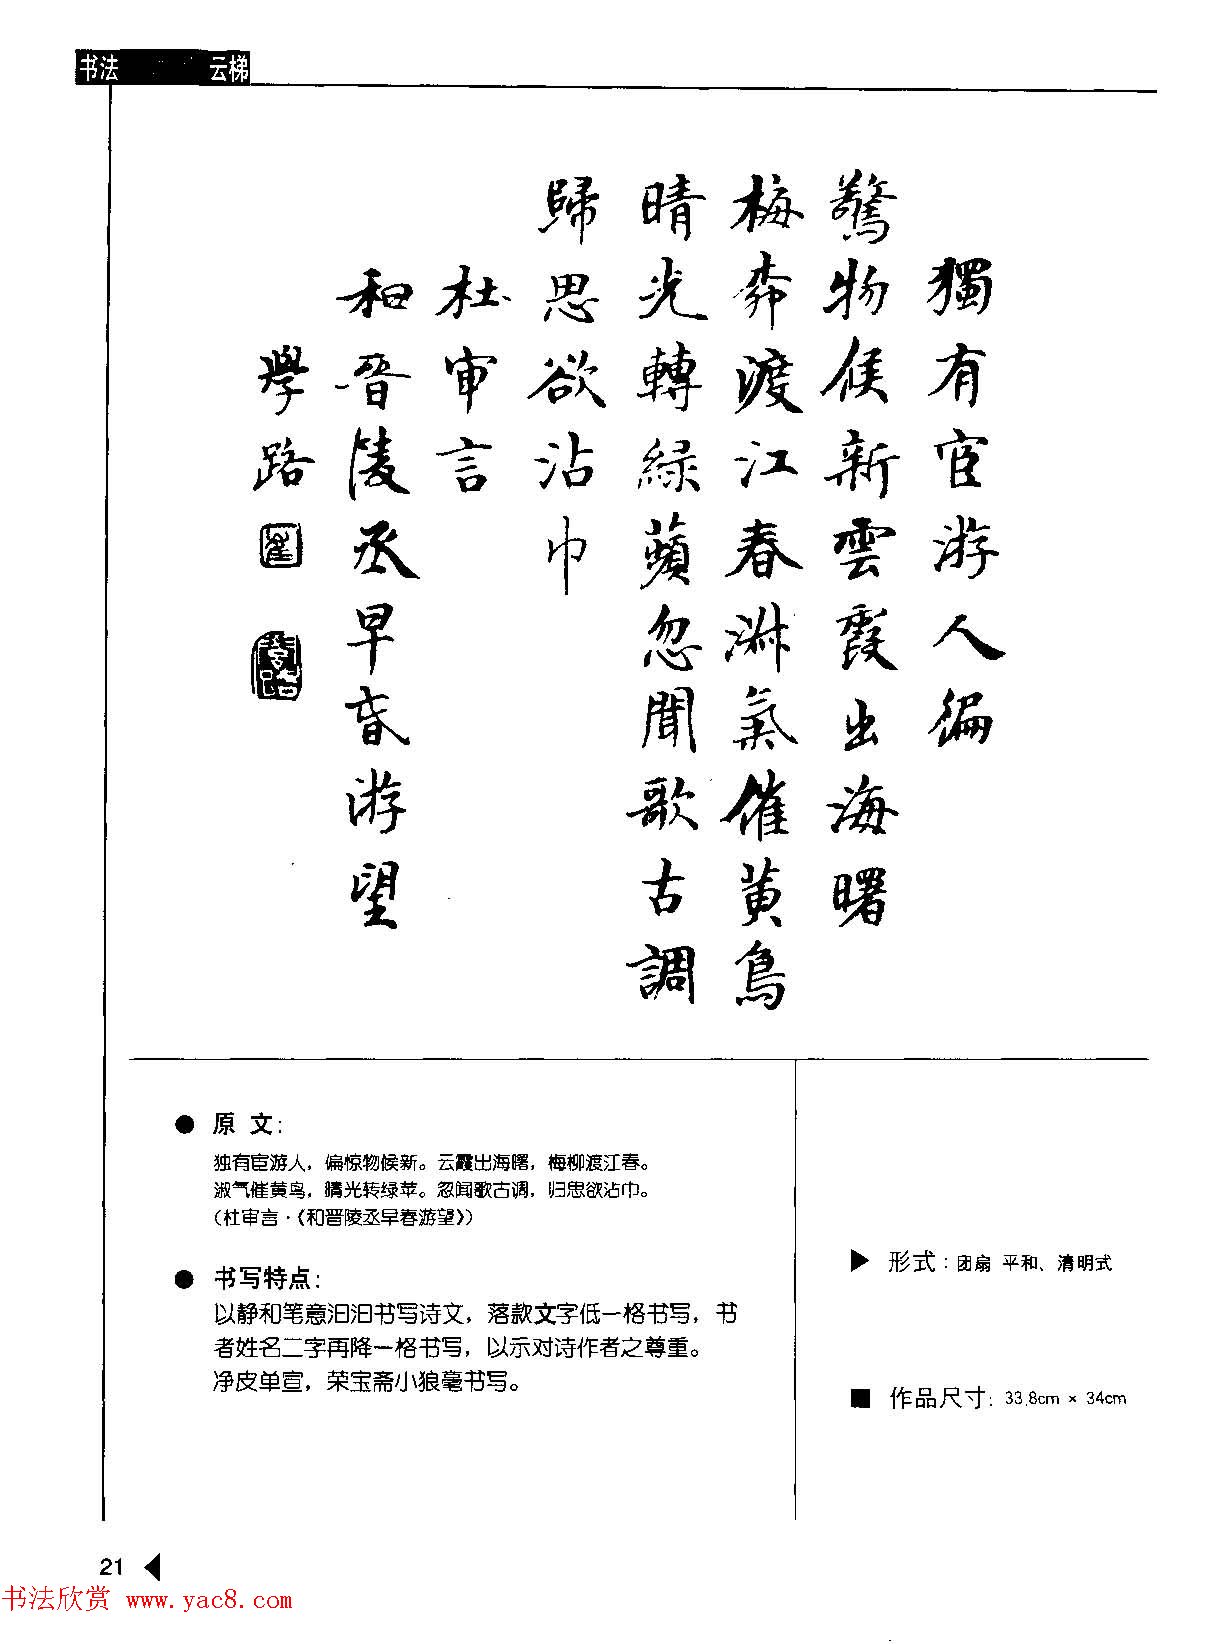 书法 云梯
獨有宦游人偏
驚物候新雲霞出海曙
梅桺渡江春淑氣催黄鳥
晴光轉緑蘋忽聞歌古調
歸思欲沾巾
杜審言
和晉陵丞早春游望
學路
● 原 文：
独有宦游人，偏惊物候新。云霞出海曙，梅柳渡江春。
淑气催黄鸟，晴光转绿苹。忽闻歌古调，归思欲沾巾。
（杜审言·《和晋陵丞早春游望》）
● 书写特点：
以静和笔意汩汩书写诗文，落款文字低一格书写，书
者姓名二字再降一格书写，以示对诗作者之尊重。
净皮单宣，荣宝斋小狼毫书写。
▶ 形式：团扇 平和、清明式
■ 作品尺寸：33.8cm × 34cm
21
书法欣赏 www.yac8.com